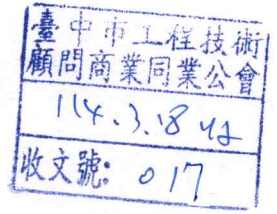 臺中市工程技術
顧問商業同業公會
114.3.18
收文號: 017